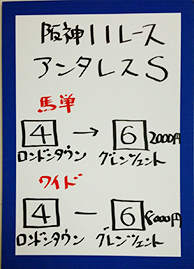 阪神11レース
アンタレスS
馬単
4 → 6 2000円
ロンドンタウン グレンツェント
ワイド
4 — 6 8000円
ロンドンタウン グレンツェント